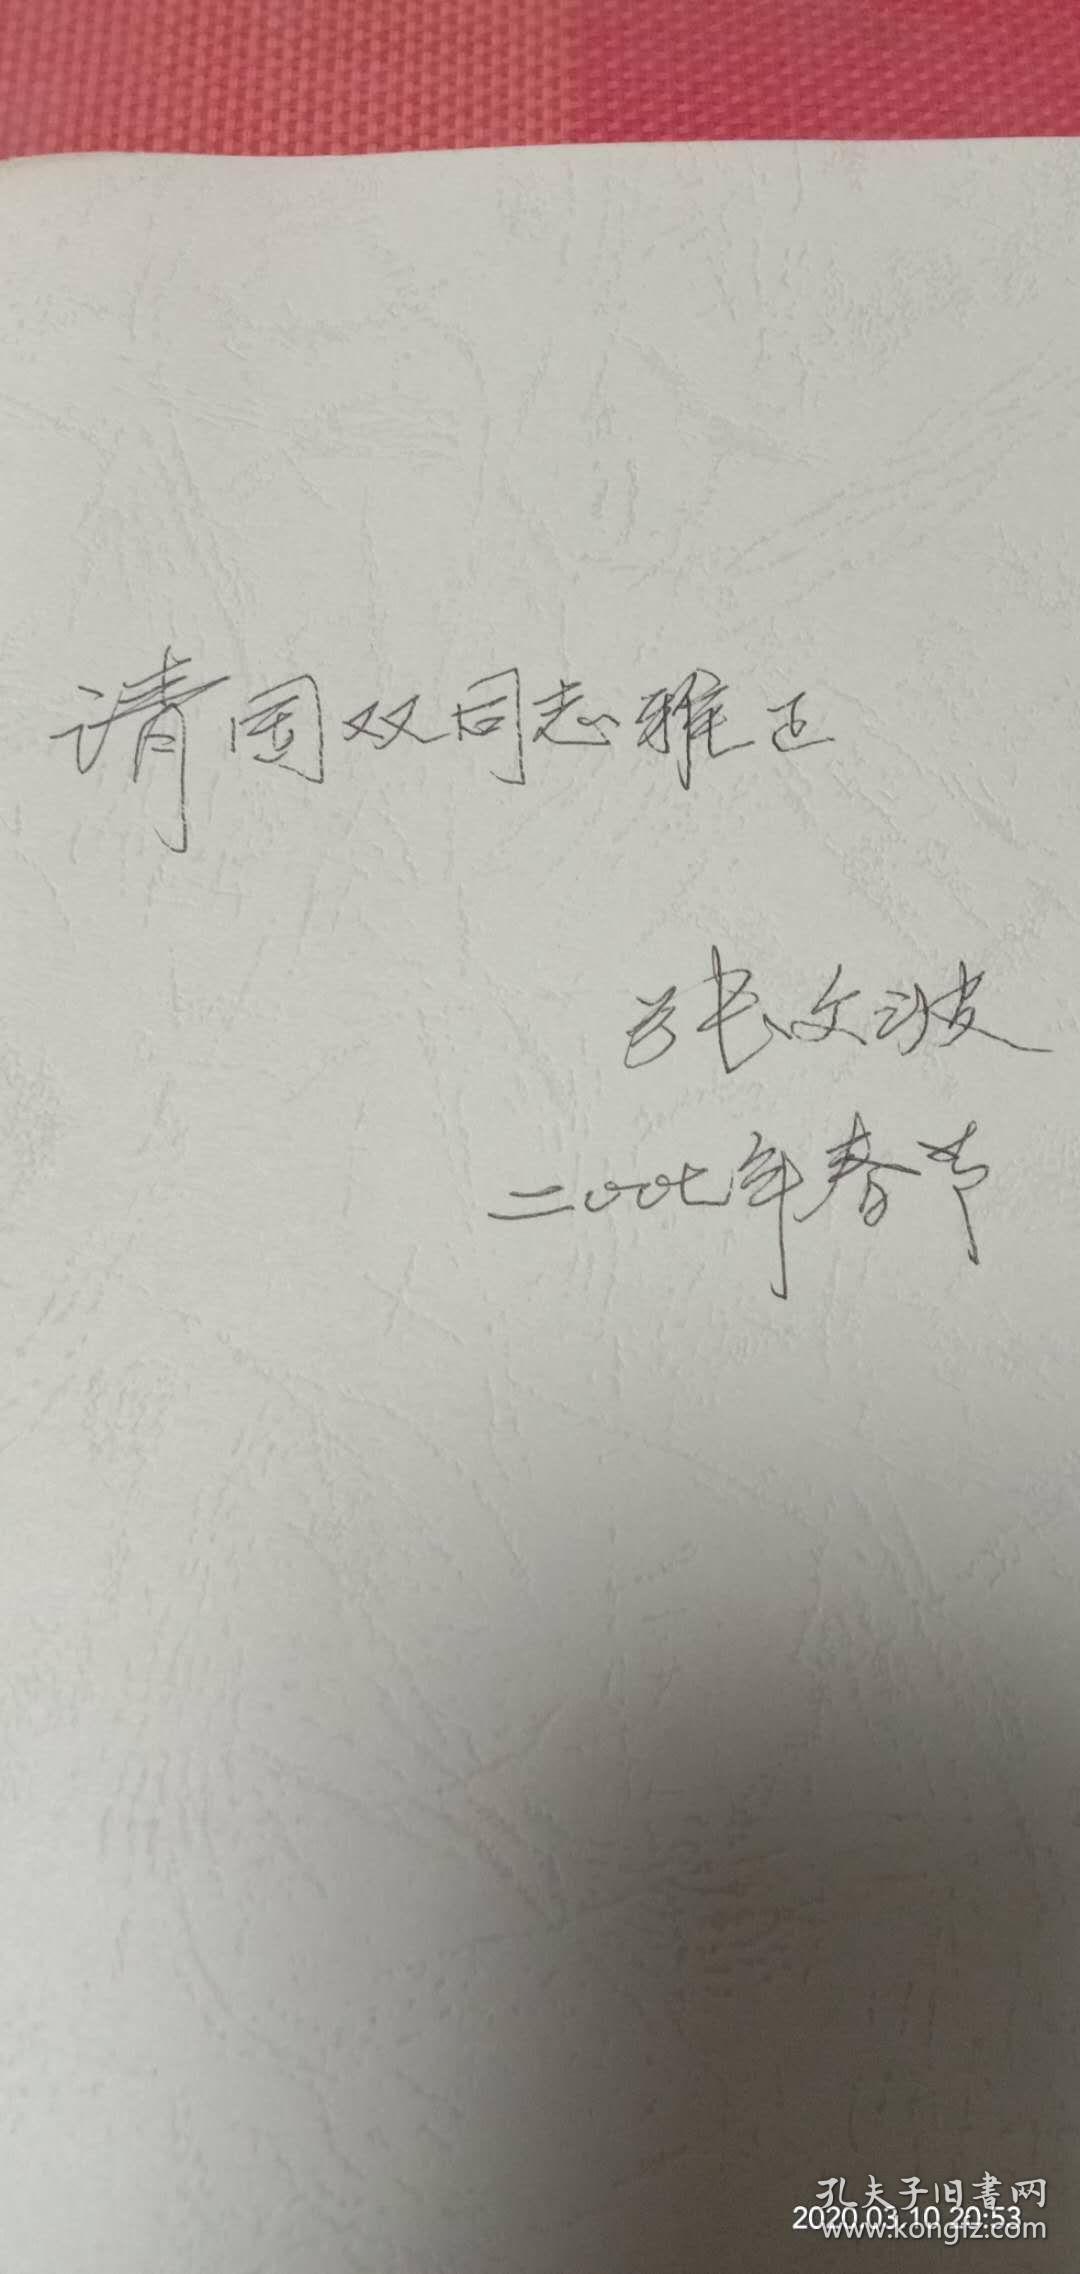 请国双同志雅正
张文波
二〇〇七年春节
孔夫子旧書网
2020.03.10 20:53
www.kongfz.com